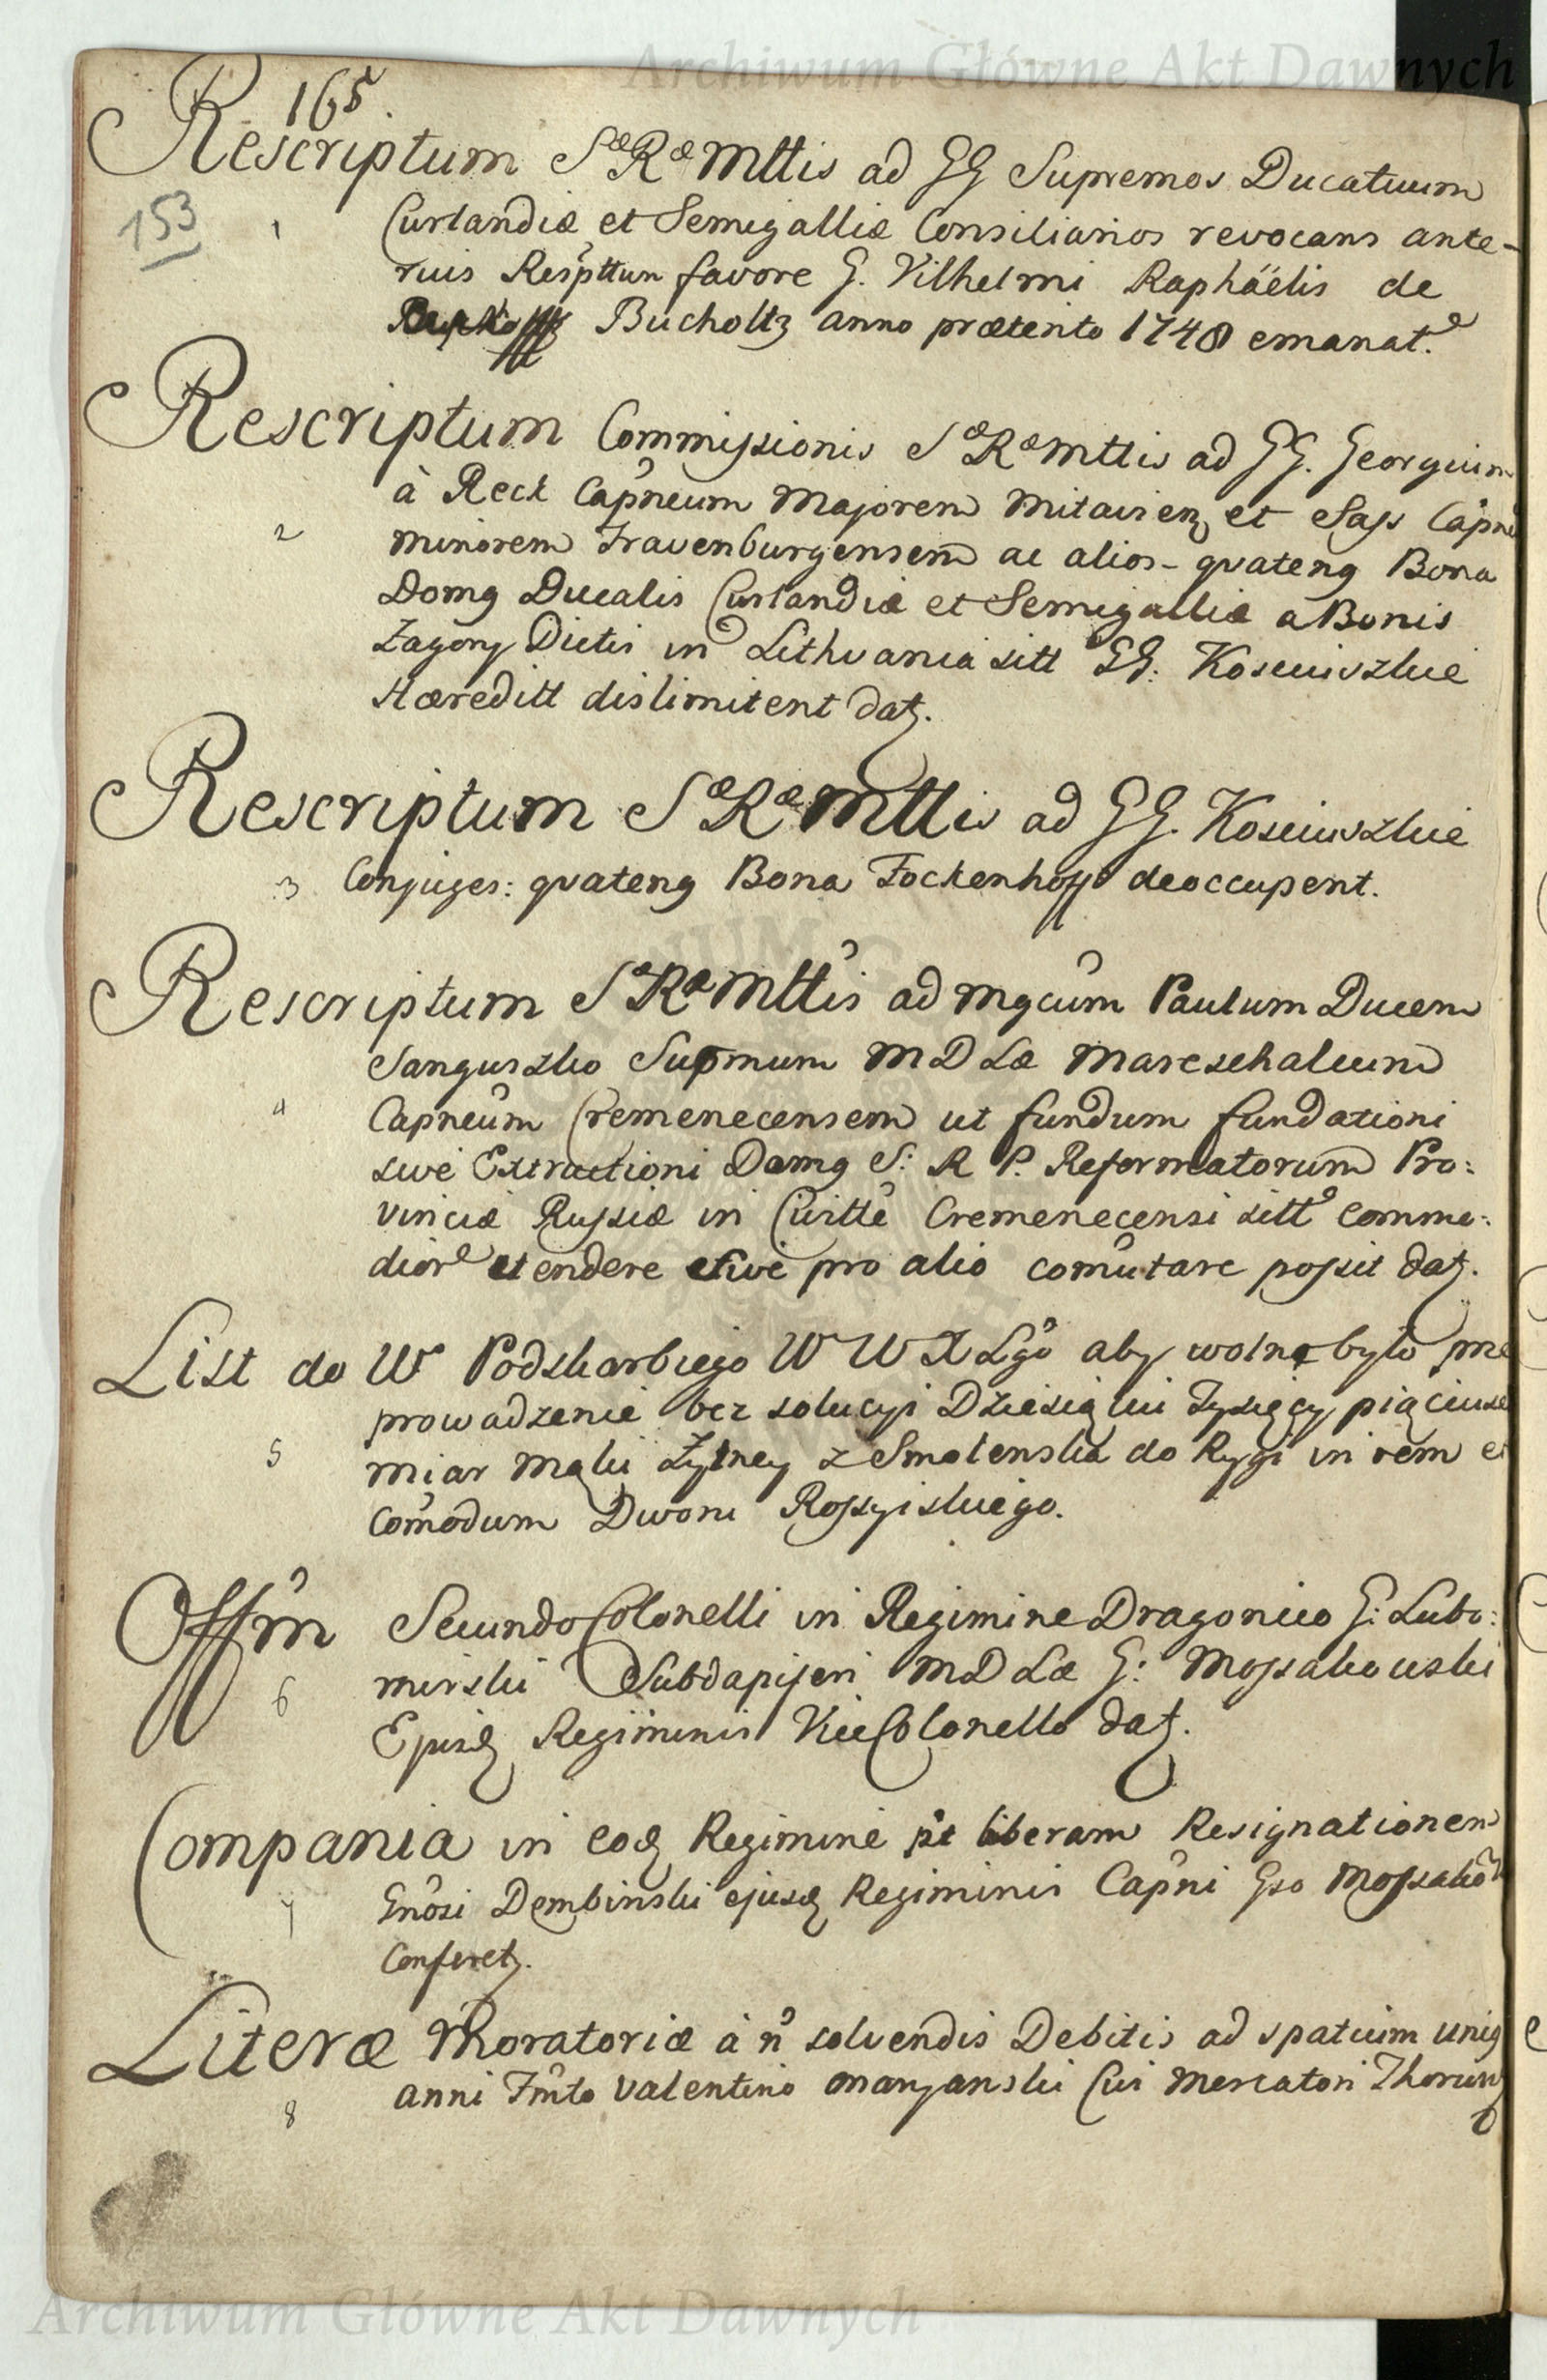 Archiwum Główne Akt Dawnych
165
Rescriptum SæRæMttis ad GG Supremos Ducatuum
153
1 Curlandiæ et Semigalliæ Consiliarios revocans ante-
Respttum favore G. Vilhelmi Raphäelis de
Bucholtz anno prætento 1748 emanat.
Rescriptum Commissionis SæRæMttis ad GG. Georgium
à Reck Capneum Majorem Mitavien et Sass Capn
2 minorem Fravenburgensem ac alios - qvateng Bona
Domg Ducalis Curlandiæ et Semigalliæ a Bonis
Zagory Dictis in Lithvania sitt GG: Kosciuszkie
Hæreditt dislimitent datz.
Rescriptum SæRæMttis ad GG. Kosciuszkie
3 Conjuges: qvateng Bona Fockenhoff deoccupent.
Rescriptum SæRæMttis ad Mgcum Paulum Ducem
Sanguszko Supmum MDLæ Mareschalcum
4 Capneum Cremenecensem ut fundum fundationi
sive Extructioni Domg S: R P. Reformatorum Pro:
vinciæ Russiæ in Cuitte Cremenecensi sitt commo:
dior endere sive pro alio comutare possit datz.
List do W Podskarbiego W W X Lgo aby wolne było prze
prowadzenie bez solucyi Dziesiątki Tysięcy pięciuse
5 miar Mąki Zytney z Smolenska do Rygi in rem e
Comodum Dworu Rossyiskiego.
Offm Secundo Colonelli in Regimine Dragonico G: Lubo:
6 mirski Subdapiferi MDLæ G: Mossakowski
Ejusd Regiminis ViceColonello datz.
Compania in eod Regimine pt liberam Resignationem
7 Gnosi Dembinski ejusd Regiminis Capni Gso Mossako
Conferetz.
Literæ Moratoriæ à n solvendis Debitis ad spatium unig
8 anni Fmto Valentino Maryanski Cui Mercatori Thorun
Archiwum Główne Akt Dawnych